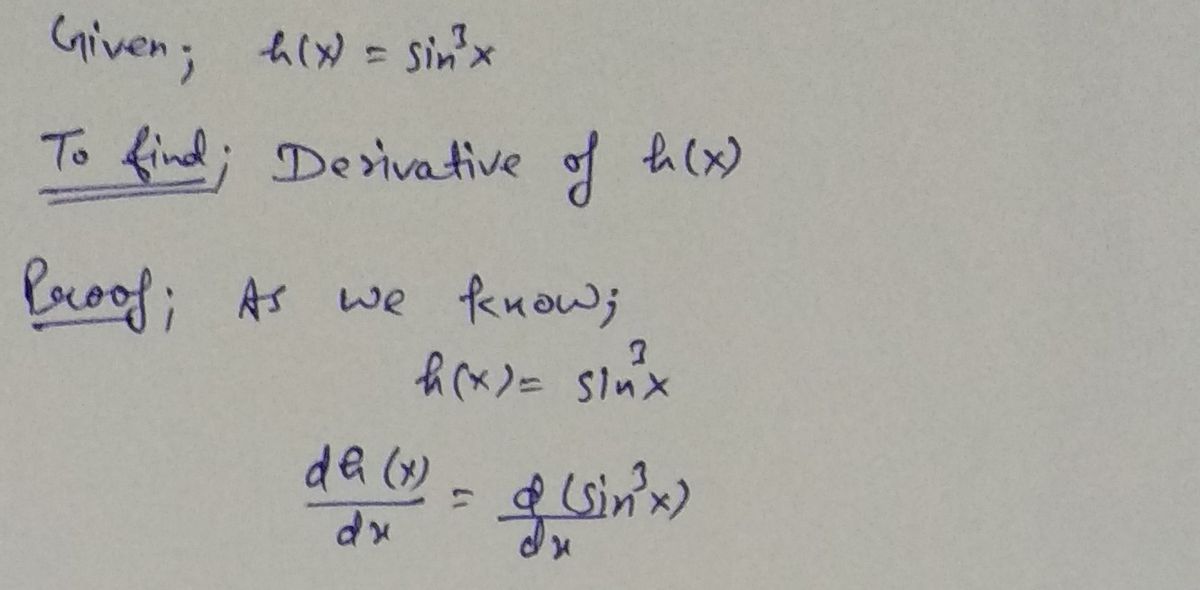 Given; h(x) = sin³x
To find; Derivative of h(x)
Proof; As we know;
h(x) = sin³x
dh(x)/dx = d(sin³x)/dx